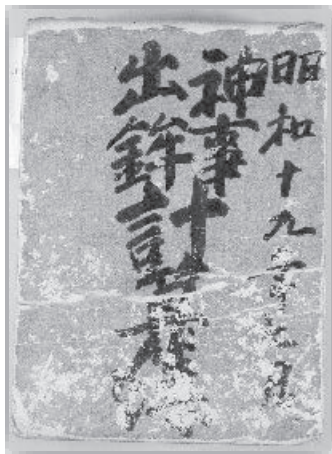 昭和十九年七月
神事
出鉾
計